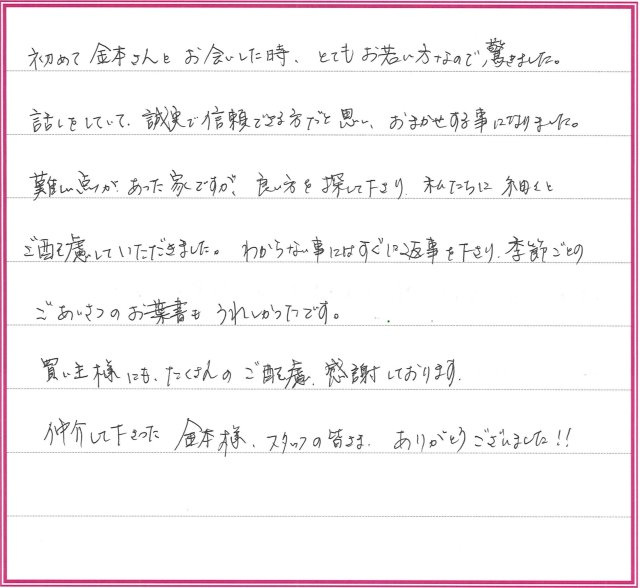 初めて金本さんとお会いした時、とてもお若い方なので、驚きました。
話しをしていて、誠実で信頼できる方だと思い、おまかせする事になりました。
難しい点があった家ですが、良い方を探して下さり、私たちに細々と
ご配慮していただきました。わからない事にはすぐに返事を下さり、季節ごとの
ごあいさつのお葉書もうれしかったです。
買い主様にも、たくさんのご配慮、感謝しております。
仲介して下さった金本様、スタッフの皆さま、ありがとうございました!!